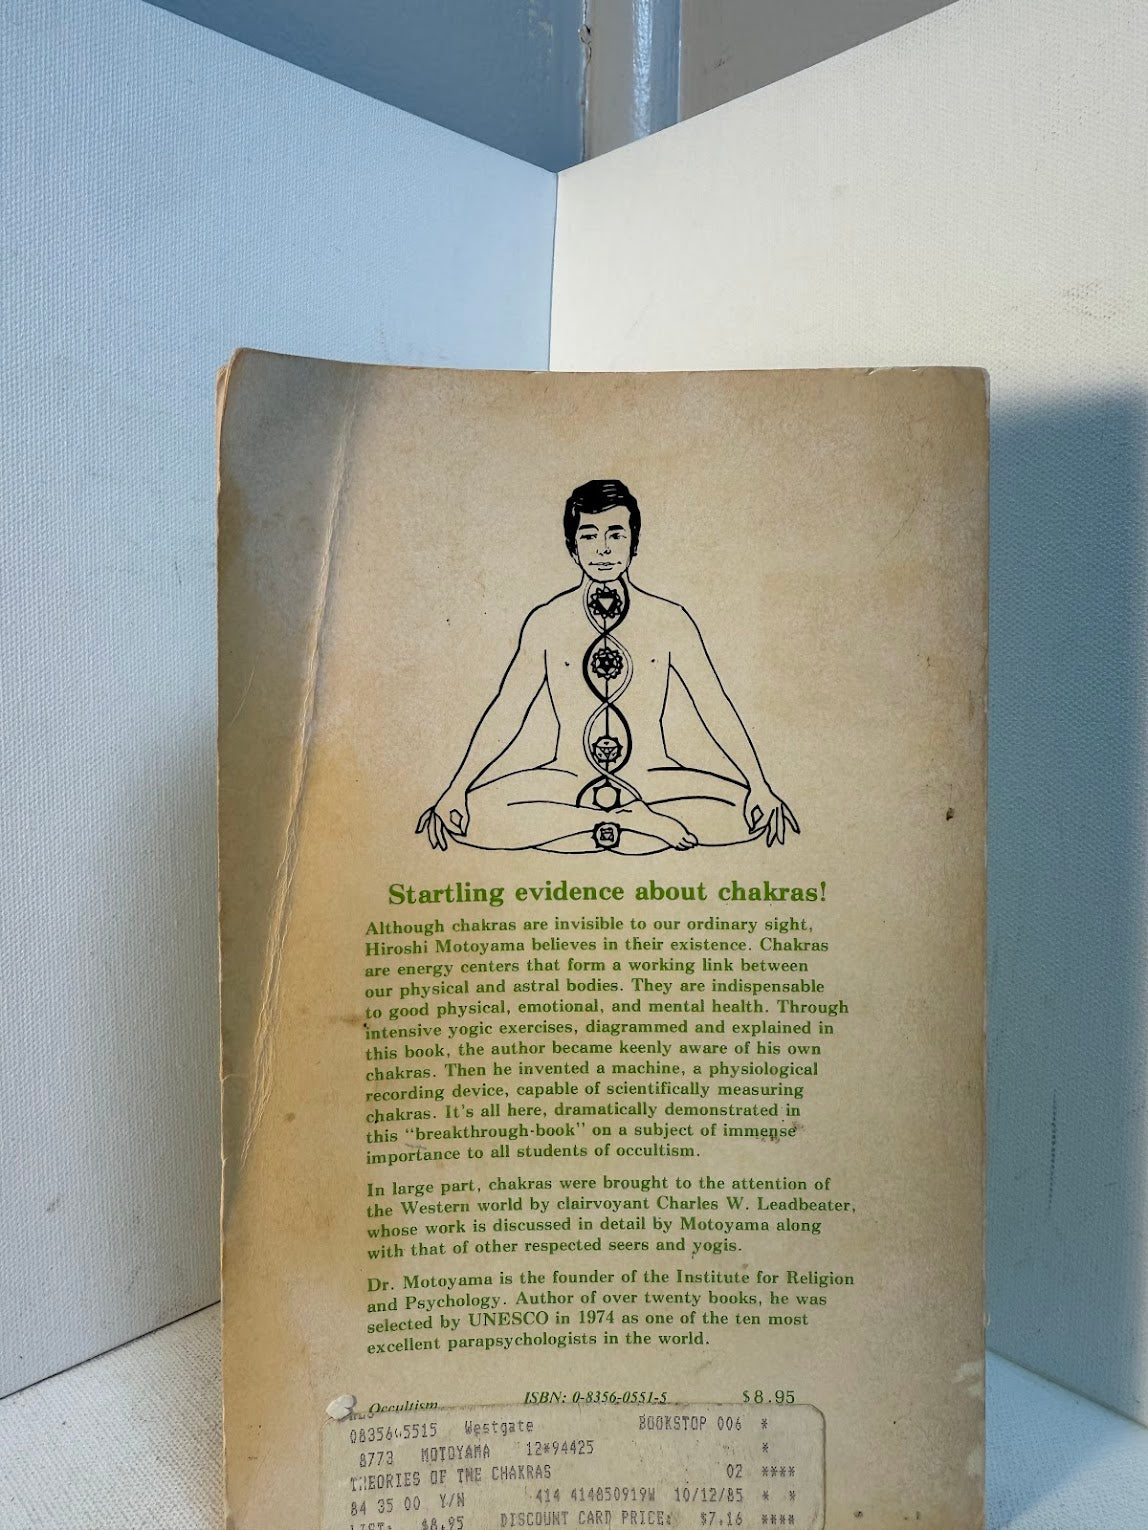 Startling evidence about chakras!
Although chakras are invisible to our ordinary sight,
Hiroshi Motoyama believes in their existence. Chakras
are energy centers that form a working link between
our physical and astral bodies. They are indispensable
to good physical, emotional, and mental health. Through
intensive yogic exercises, diagrammed and explained in
this book, the author became keenly aware of his own
chakras. Then he invented a machine, a physiological
recording device, capable of scientifically measuring
chakras. It's all here, dramatically demonstrated in
this "breakthrough-book" on a subject of immense
importance to all students of occultism.
In large part, chakras were brought to the attention of
the Western world by clairvoyant Charles W. Leadbeater,
whose work is discussed in detail by Motoyama along
with that of other respected seers and yogis.
Dr. Motoyama is the founder of the Institute for Religion
and Psychology. Author of over twenty books, he was
selected by UNESCO in 1974 as one of the ten most
excellent parapsychologists in the world.
Occultism ISBN: 0-8356-0551-5 $8.95
Westgate BOOKSTOP 006 *
8773 MOTOYAMA 12*94425 *
THEORIES OF THE CHAKRAS 02 ****
84 35 00 Y/N 414 414850919W 10/12/85 * *
LIST: $8.95 DISCOUNT CARD PRICE: $7.16 ****